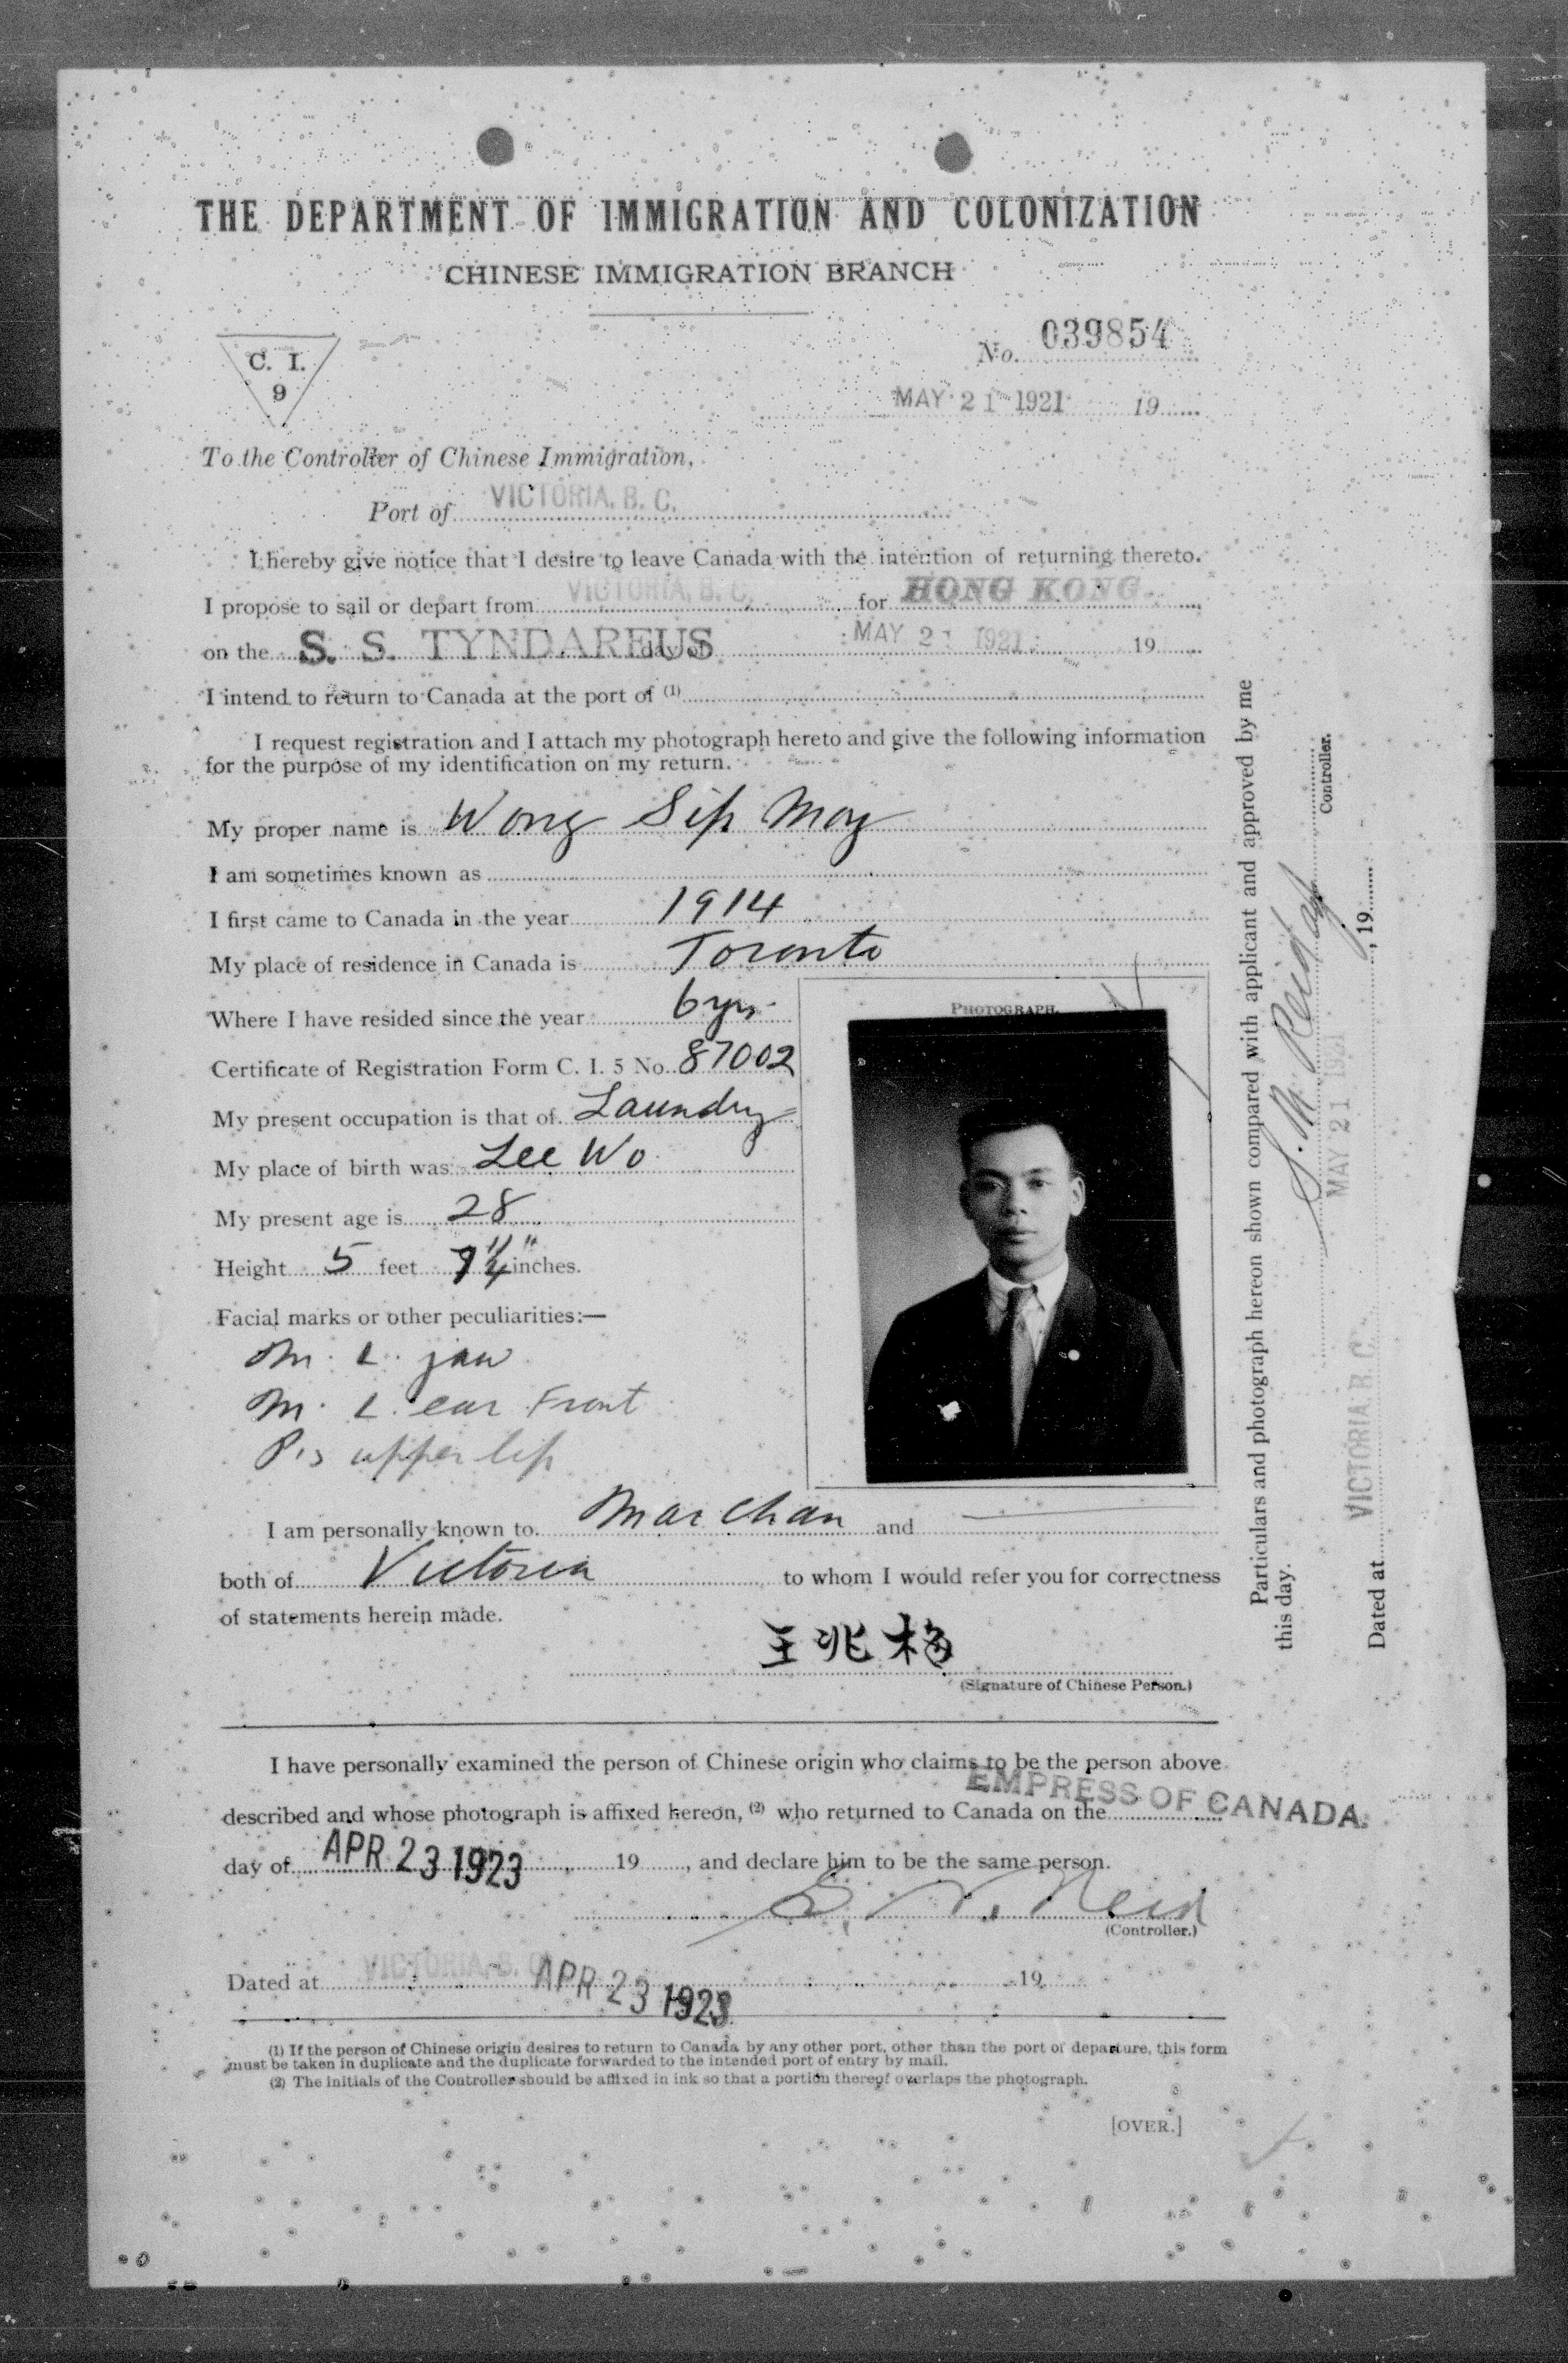 THE DEPARTMENT OF IMMIGRATION AND COLONIZATION
CHINESE IMMIGRATION BRANCH
C. I.
9
No. 039854
MAY 21 1921 19
To the Controller of Chinese Immigration,
Port of VICTORIA, B. C.
I hereby give notice that I desire to leave Canada with the intention of returning thereto.
I propose to sail or depart from VICTORIA, B. C. for HONG KONG
on the S. S. TYNDAREUS MAY 21 1921 19
I intend to return to Canada at the port of (1)
I request registration and I attach my photograph hereto and give the following information
for the purpose of my identification on my return.
My proper name is Wong Sip Moy
I am sometimes known as
I first came to Canada in the year 1914
My place of residence in Canada is Toronto
Where I have resided since the year 6 yrs
Certificate of Registration Form C. I. 5 No. 87002
My present occupation is that of Laundry
My place of birth was Lee Wo
My present age is 28
Height 5 feet inches.
Facial marks or other peculiarities:—
M. L. jaw
M. L. ear Front
P.s upper lip
PHOTOGRAPH.
I am personally known to Mar Chan and
both of Victoria to whom I would refer you for correctness
of statements herein made.
王兆梅
(Signature of Chinese Person.)
I have personally examined the person of Chinese origin who claims to be the person above
described and whose photograph is affixed hereon, (2) who returned to Canada on the EMPRESS OF CANADA.
day of APR 23 1923 19 , and declare him to be the same person.
Reid
(Controller.)
Dated at VICTORIA, B. C. APR 23 1923 19
(1) If the person of Chinese origin desires to return to Canada by any other port, other than the port of departure, this form
must be taken in duplicate and the duplicate forwarded to the intended port of entry by mail.
(2) The initials of the Controller should be affixed in ink so that a portion thereof overlaps the photograph.
[OVER.]
Particulars and photograph hereon shown compared with applicant and approved by me
this day.
Reid
Controller.
MAY 21 1921
Dated at VICTORIA, B. C. , 19